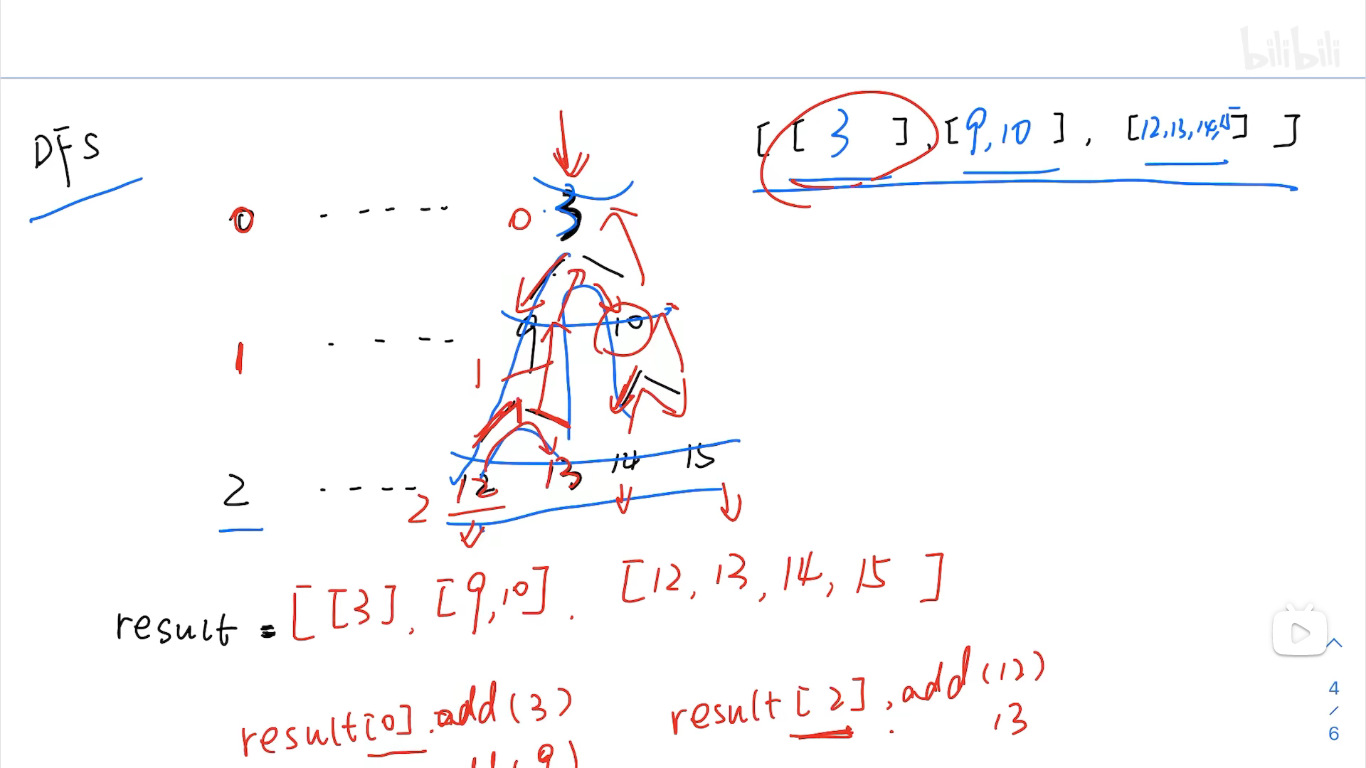 bilibili
DFS
[ [ 3 ], [ 9,10 ], [12,13,14,15] ]
0 ..... 0 3
1 ..... 9 10
1
2 ..... 12 13 14 15
2
result = [ [3], [9,10]. [12, 13, 14, 15 ]
result[0].add(3) result[2].add(12)
(9) 13
4
/
6